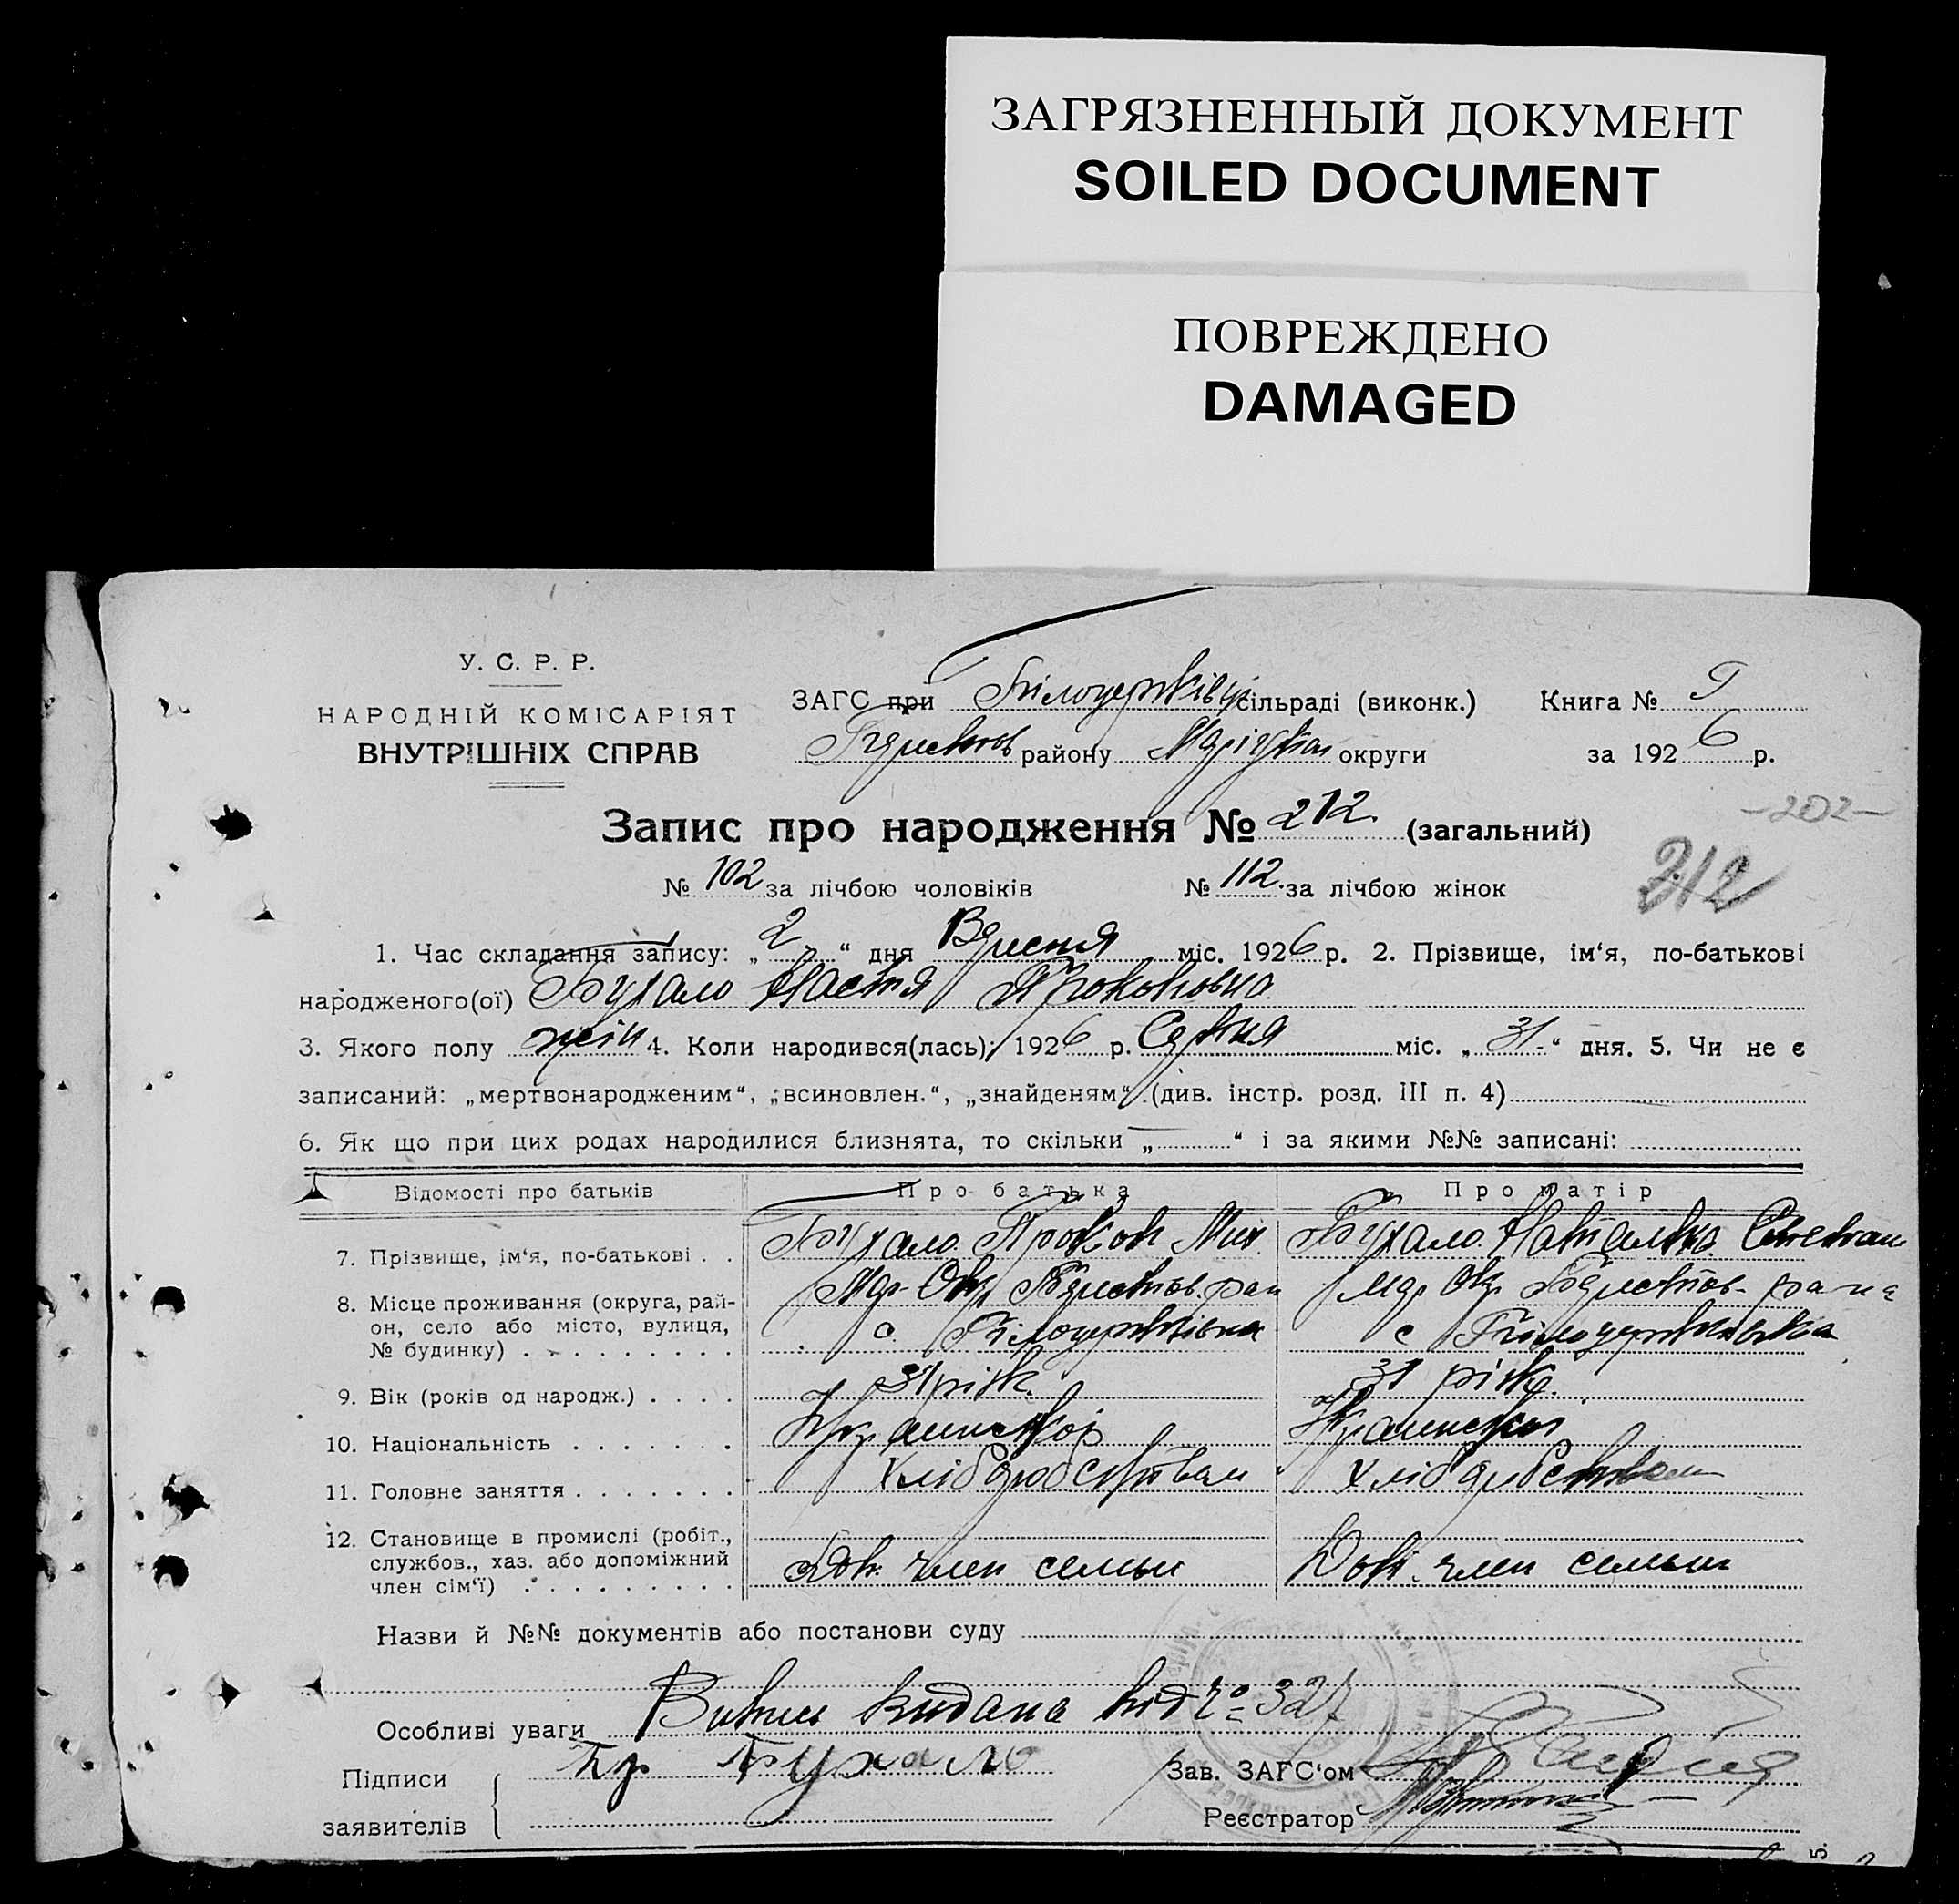 ЗАГРЯЗНЕННЫЙ ДОКУМЕНТ
SOILED DOCUMENT
ПОВРЕЖДЕНО
DAMAGED
У. С. Р. Р.
НАРОДНІЙ КОМІСАРІЯТ
ВНУТРІШНІХ СПРАВ
ЗАГС при Білоцерківці сільраді (виконк.) Книга №
району округи за 1926 р.
Запис про народження № 212. (загальний)
-202-
212
№ 102 за лічбою чоловіків № 112. за лічбою жінок
1. Час складання запису: „ 2 “ дня Вресня міс. 1926 р. 2. Прізвище, ім‘я, по-батькові
народженого(ої) Бухало Настя Прокоповна
3. Якого полу жін 4. Коли народився(лась): 1926 р. Серпня міс. „ 31 “ дня. 5. Чи не є
записаний: „мертвонародженим“, „всиновлен.“, „знайденям“ (див. інстр. розд. III п. 4)
6. Як що при цих родах народилися близнята, то скільки „ “ і за якими №№ записані:
Відомості про батьків Про батька Про матір
7. Прізвище, ім‘я, по-батькові . . Бухало Прокоп Мих Бухало Наталка Степан
8. Місце проживання (округа, рай-
он, село або місто, вулиця,
№ будинку) . . . . . . . . .
с. Білоцерківка с Білоцерківка
9. Вік (років од народж.) . . . . 31 рік. 31 рік.
10. Національність . . . . . . .
11. Головне заняття . . . . . . . Хліборобством Хліборобством
12. Становище в промислі (робіт.,
службов., хаз. або допоміжний
член сім‘ї) . . . . . . . . . Доп. член семьи Доп. член семьи
Назви й №№ документів або постанови суду
Особливі уваги Випис видана під № 327
Підписи
заявителів
Пр Бухало
Зав. ЗАГС‘ом
Реєстратор
5.